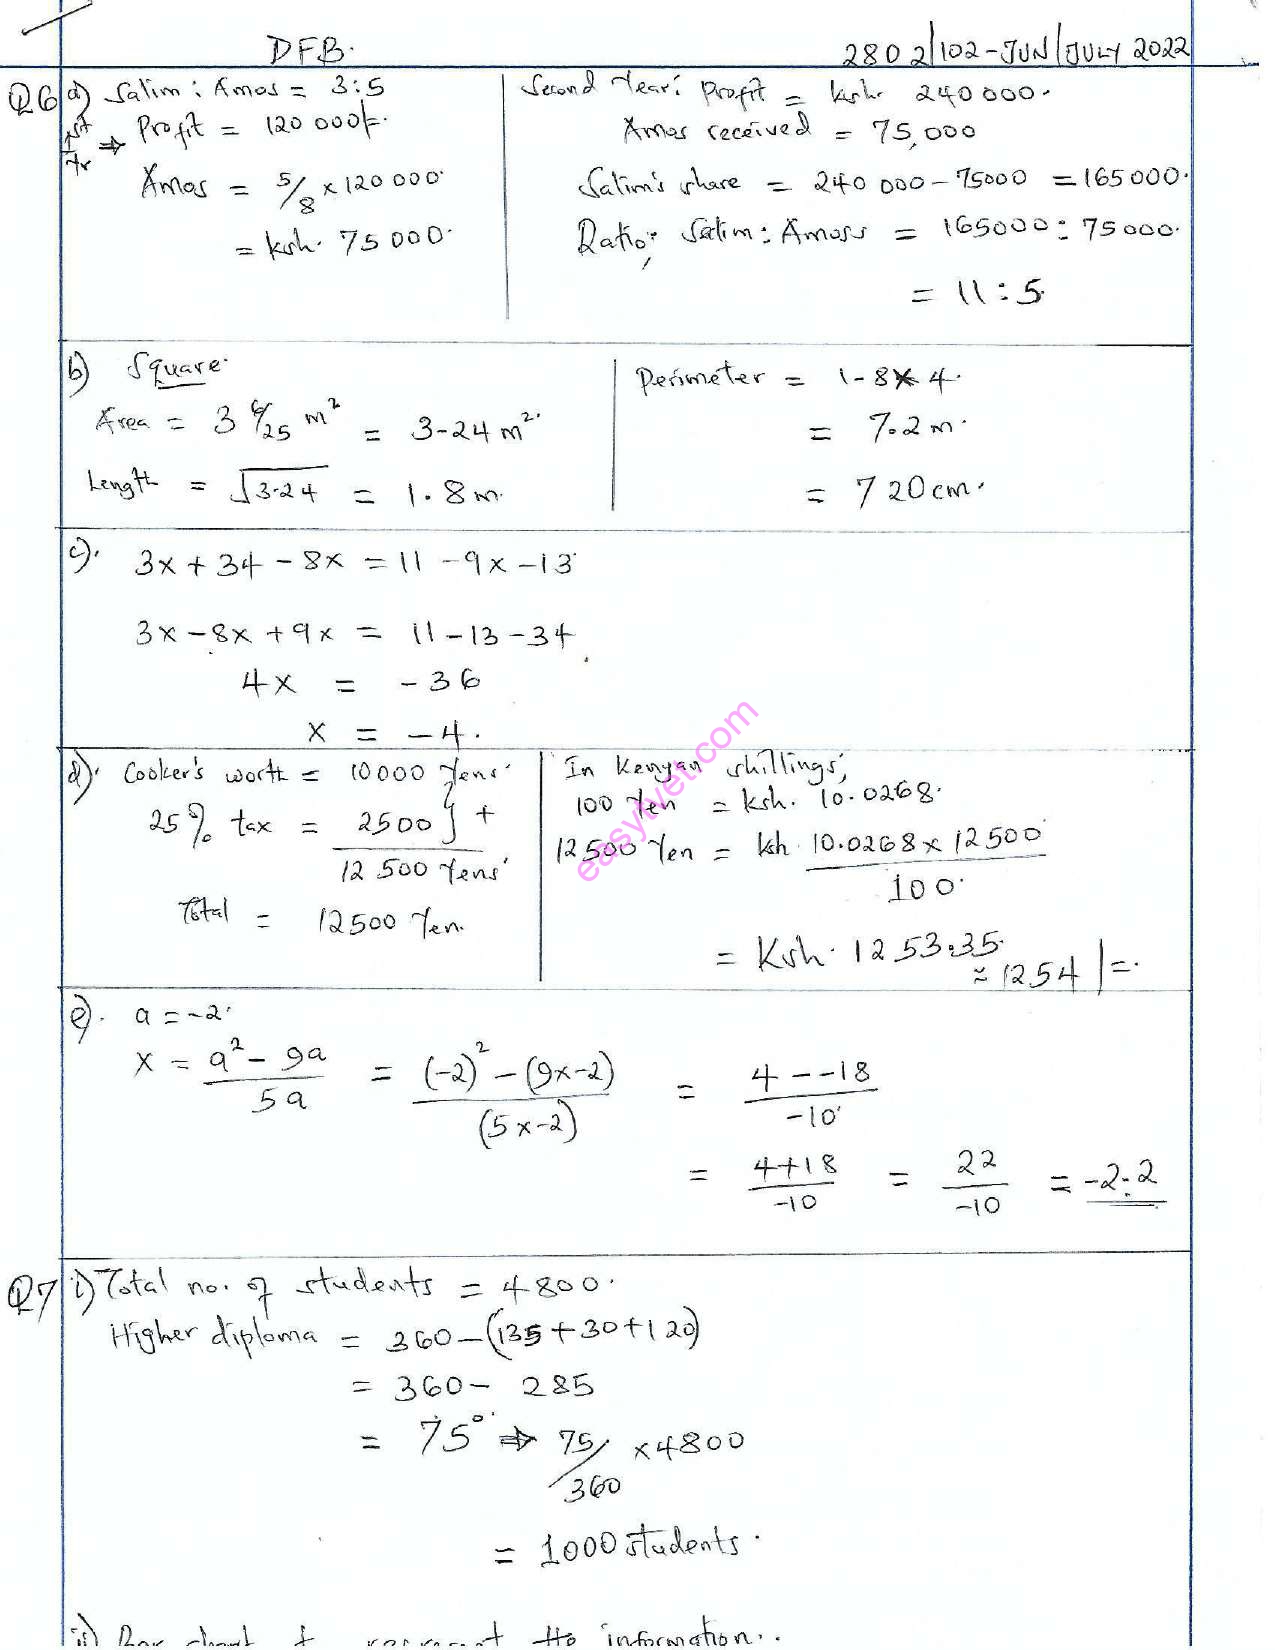 DFB.
2802/102-JUN/JULY 2022
Q6 a) Salim : Amos = 3:5
1st Yr ⇒ Profit = 120 000/=.
Amos = 5/8 x 120 000.
= ksh. 75 000.
Second Year: Profit = ksh. 240 000.
Amos received = 75,000
Salim's share = 240 000 - 75000 = 165000.
Ratio; Salim : Amoss = 165000 : 75000.
= 11 : 5.
b) Square.
Area = 3 6/25 m² = 3.24 m².
Length = √3.24 = 1.8m.
Perimeter = 1.8 x 4.
= 7.2m.
= 720cm.
c). 3x + 34 - 8x = 11 - 9x - 13
3x - 8x + 9x = 11 - 13 - 34
4x = -36
x = -4.
d). Cooker's worth = 10000 Yens.
25% tax = 2500 } +
12 500 Yens
Total = 12500 Yen.
In Kenyan shillings;
100 Yen = ksh. 10.0268.
12500 Yen = kh 10.0268 x 12500 / 100.
= Ksh. 1253.35.
≈ 1254/=.
easytvet.com
e). a = -2.
x = a² - 9a / 5a = (-2)² - (9x-2) / (5x-2) = 4 - -18 / -10
= 4+18 / -10 = 22 / -10 = -2.2
Q7 i) Total no. of students = 4800.
Higher diploma = 360 - (135 + 30 + 120)
= 360 - 285
= 75° ⇒ 75/360 x 4800
= 1000 students.
ii) Bar chart represent the information..